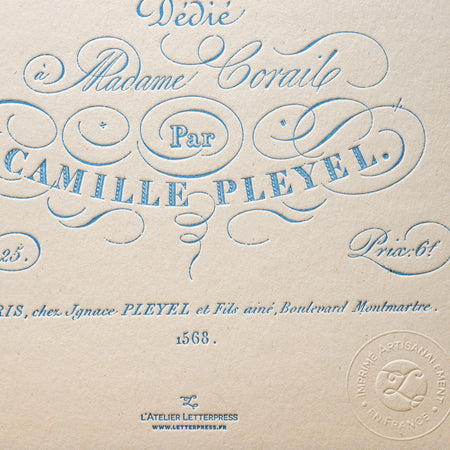 Dédié
à Madame Corail
Par
CAMILLE PLEYEL.
25.
Prix: 6f
RIS, chez Ignace PLEYEL et Fils ainé, Boulevard Montmartre.
1568.
L'ATELIER LETTERPRESS
WWW.LETTERPRESS.FR
IMPRIMÉ ARTISANALEMENT
EN FRANCE